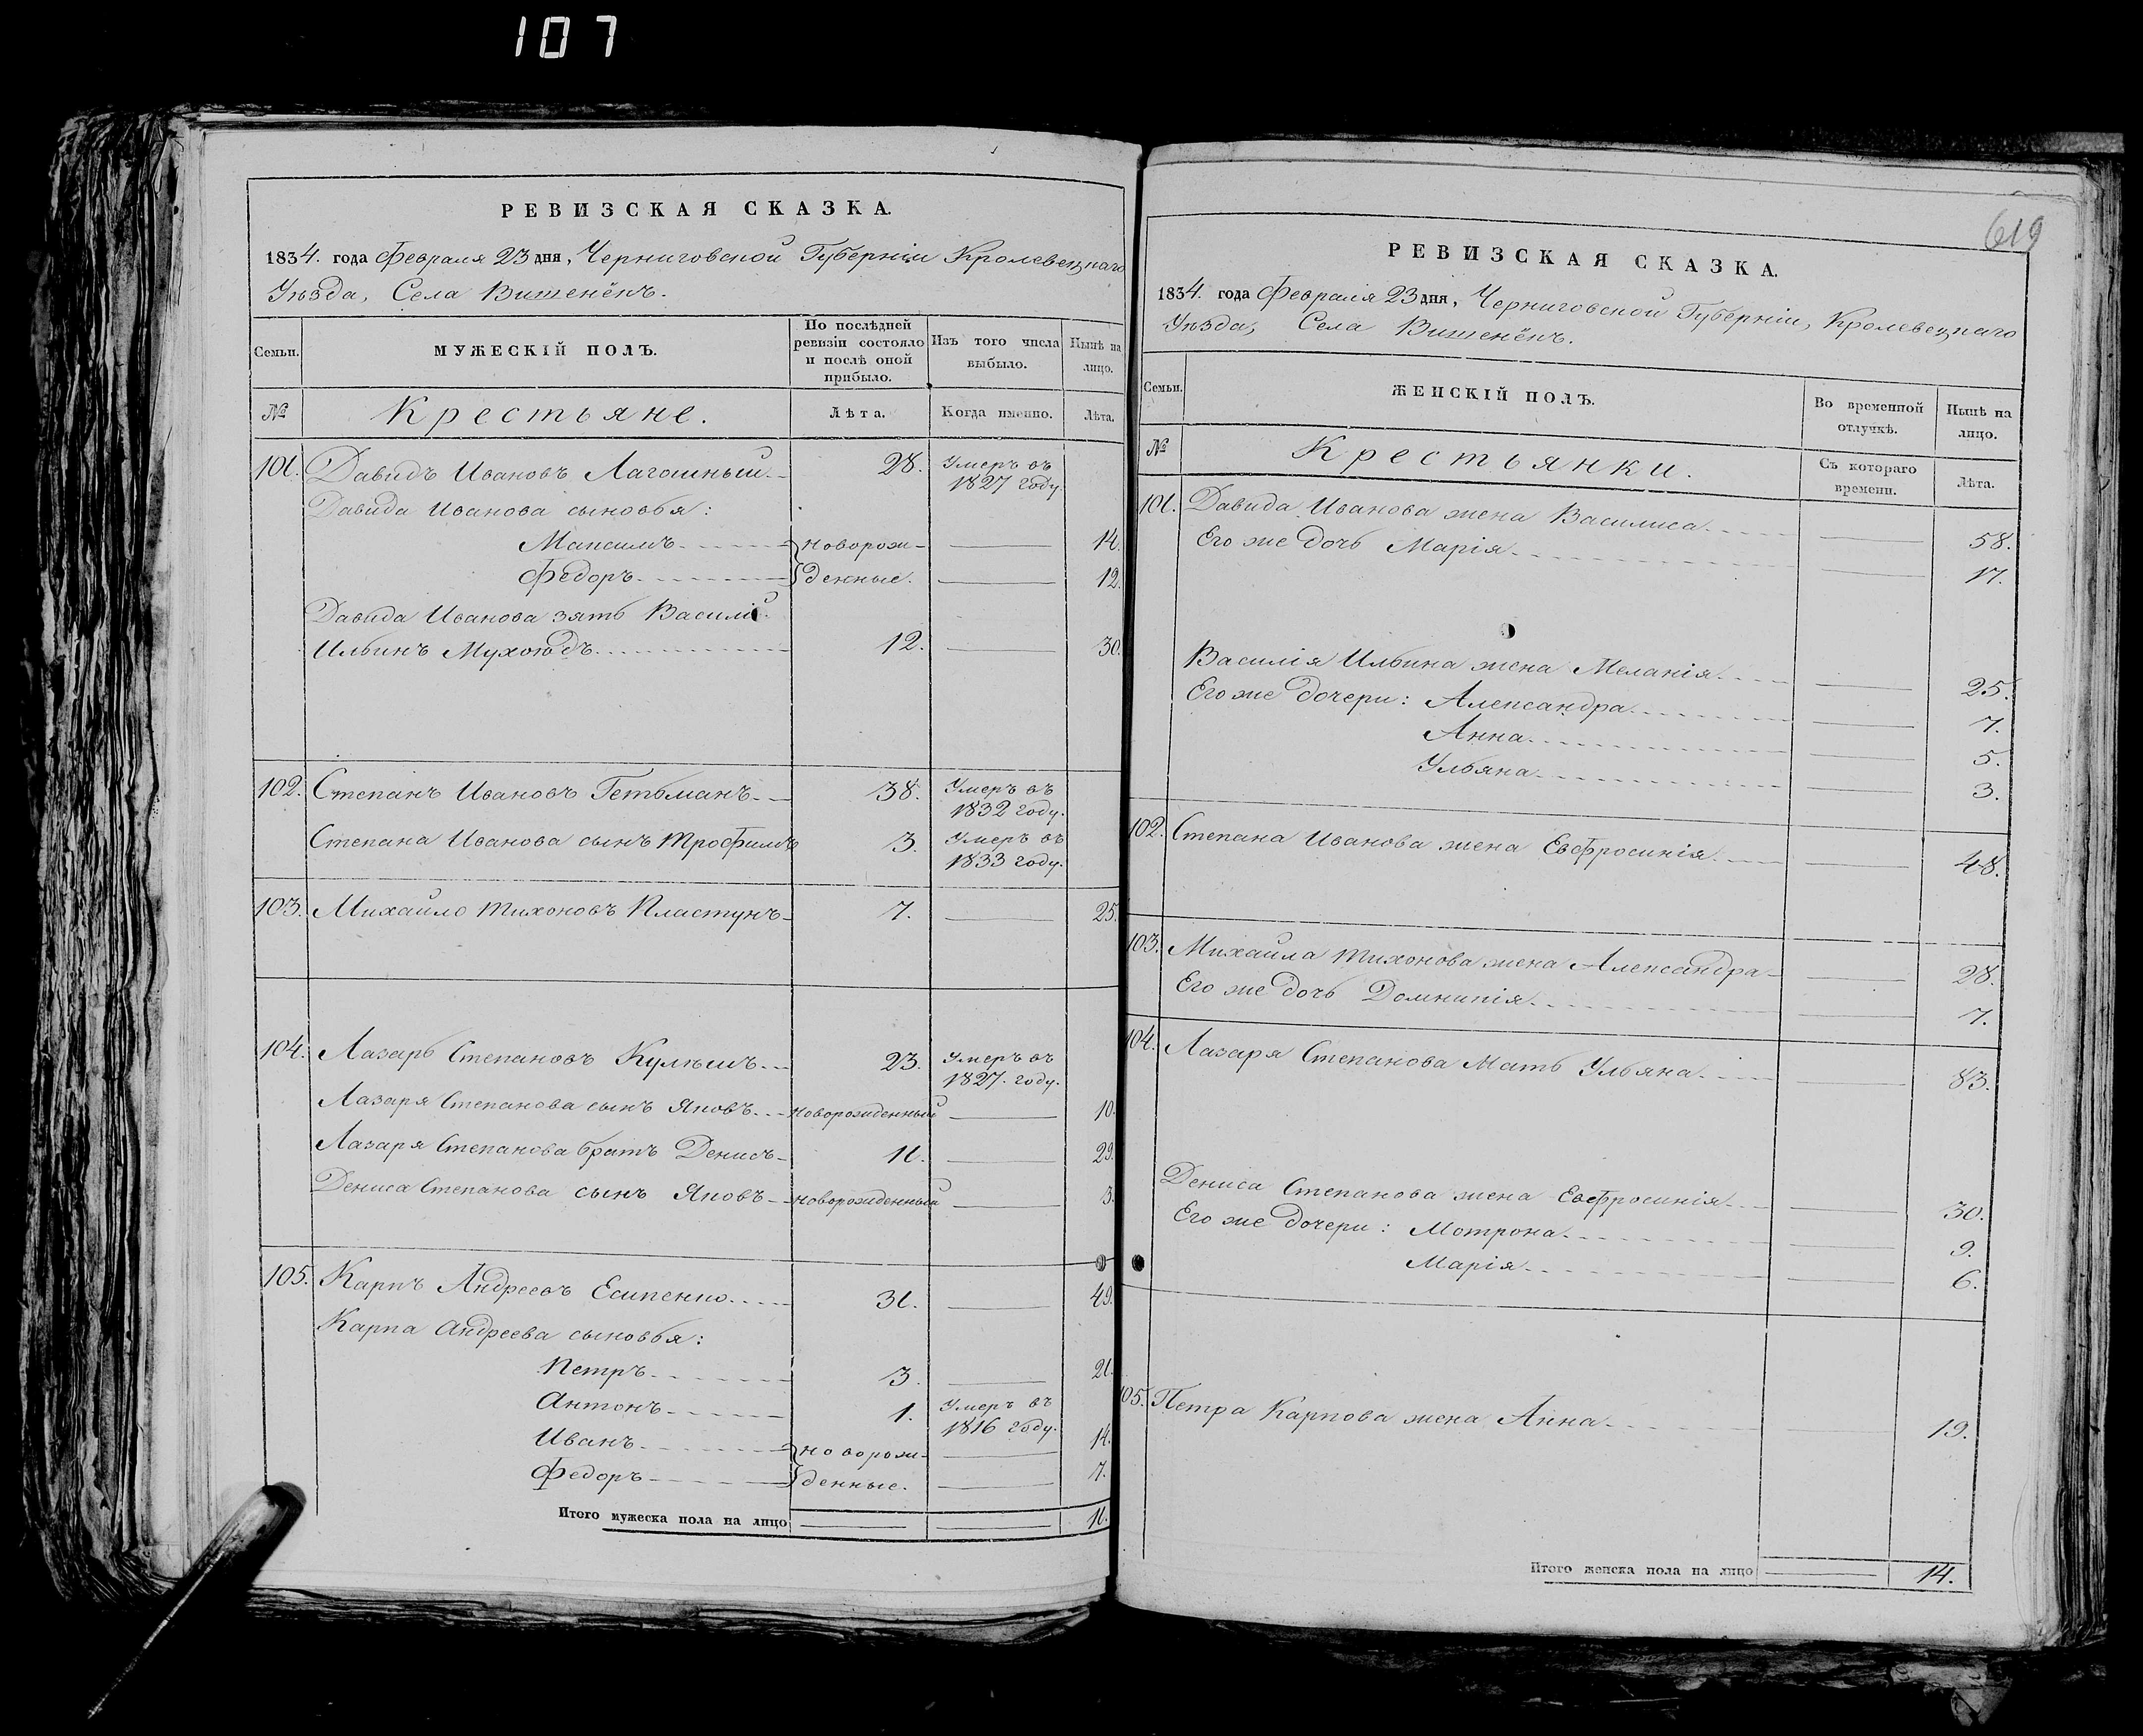 107
РЕВИЗСКАЯ СКАЗКА.
1834. года Февраля 23 дня, Черниговской Губерніи Кролевецкаго
Уѣзда, Села Вишенёкъ.
Семьи. МУЖЕСКІЙ ПОЛЪ. По послѣдней ревизіи состояло и послѣ оной прибыло. Изъ того числа выбыло. Нынѣ на лицо.
№ Крестьяне. Лѣта. Когда именно. Лѣта.
101. Давидъ Ивановъ Лагошный 28. Умеръ въ 1827 году.
Давида Иванова сыновья:
Максимъ новорож- 14.
Федоръ денные. 12.
Давида Иванова зять Василій
Ильинъ Мухоѣдъ 12. 30.
102. Степанъ Ивановъ Гетьманъ 38. Умеръ въ 1832 году.
Степана Иванова сынъ Трофимъ 3. Умеръ въ 1833 году.
103. Михайло Тихоновъ Пластунъ 7. 25.
104. Лазарь Степановъ Кулѣшъ 23. Умеръ въ 1827. году.
Лазаря Степанова сынъ Яковъ новорожденный 10.
Лазаря Степанова братъ Денисъ 11. 29.
Дениса Степанова сынъ Яковъ новорожденный 3.
105. Карпъ Андреевъ Есипенко 31. 49.
Карпа Андреева сыновья:
Петръ 3. 21.
Антонъ 1. Умеръ въ 1816 году.
Иванъ новорож- 14.
Федоръ денные. 7.
Итого мужеска пола на лицо 11.
619
РЕВИЗСКАЯ СКАЗКА.
1834. года Февраля 23 дня, Черниговской Губерніи, Кролевецкаго
Уѣзда, Села Вишенёкъ.
Семьи. ЖЕНСКІЙ ПОЛЪ. Во временной отлучкѣ. Нынѣ на лицо.
№ Крестьянки. Съ котораго времени. Лѣта.
101. Давида Иванова жена Василиса 58.
Его же дочь Марія 17.
Василія Ильина жена Меланія 25.
Его же дочери: Александра 7.
Анна 5.
Ульяна 3.
102. Степана Иванова жена Евфросинія 48.
103. Михайла Тихонова жена Александра 28.
Его же дочь Домникія 7.
104. Лазаря Степанова Мать Ульяна 83.
Дениса Степанова жена Евфросинія 30.
Его же дочери: Мотрона 9.
Марія 6.
105. Петра Карпова жена Анна 19.
Итого женска пола на лицо 14.